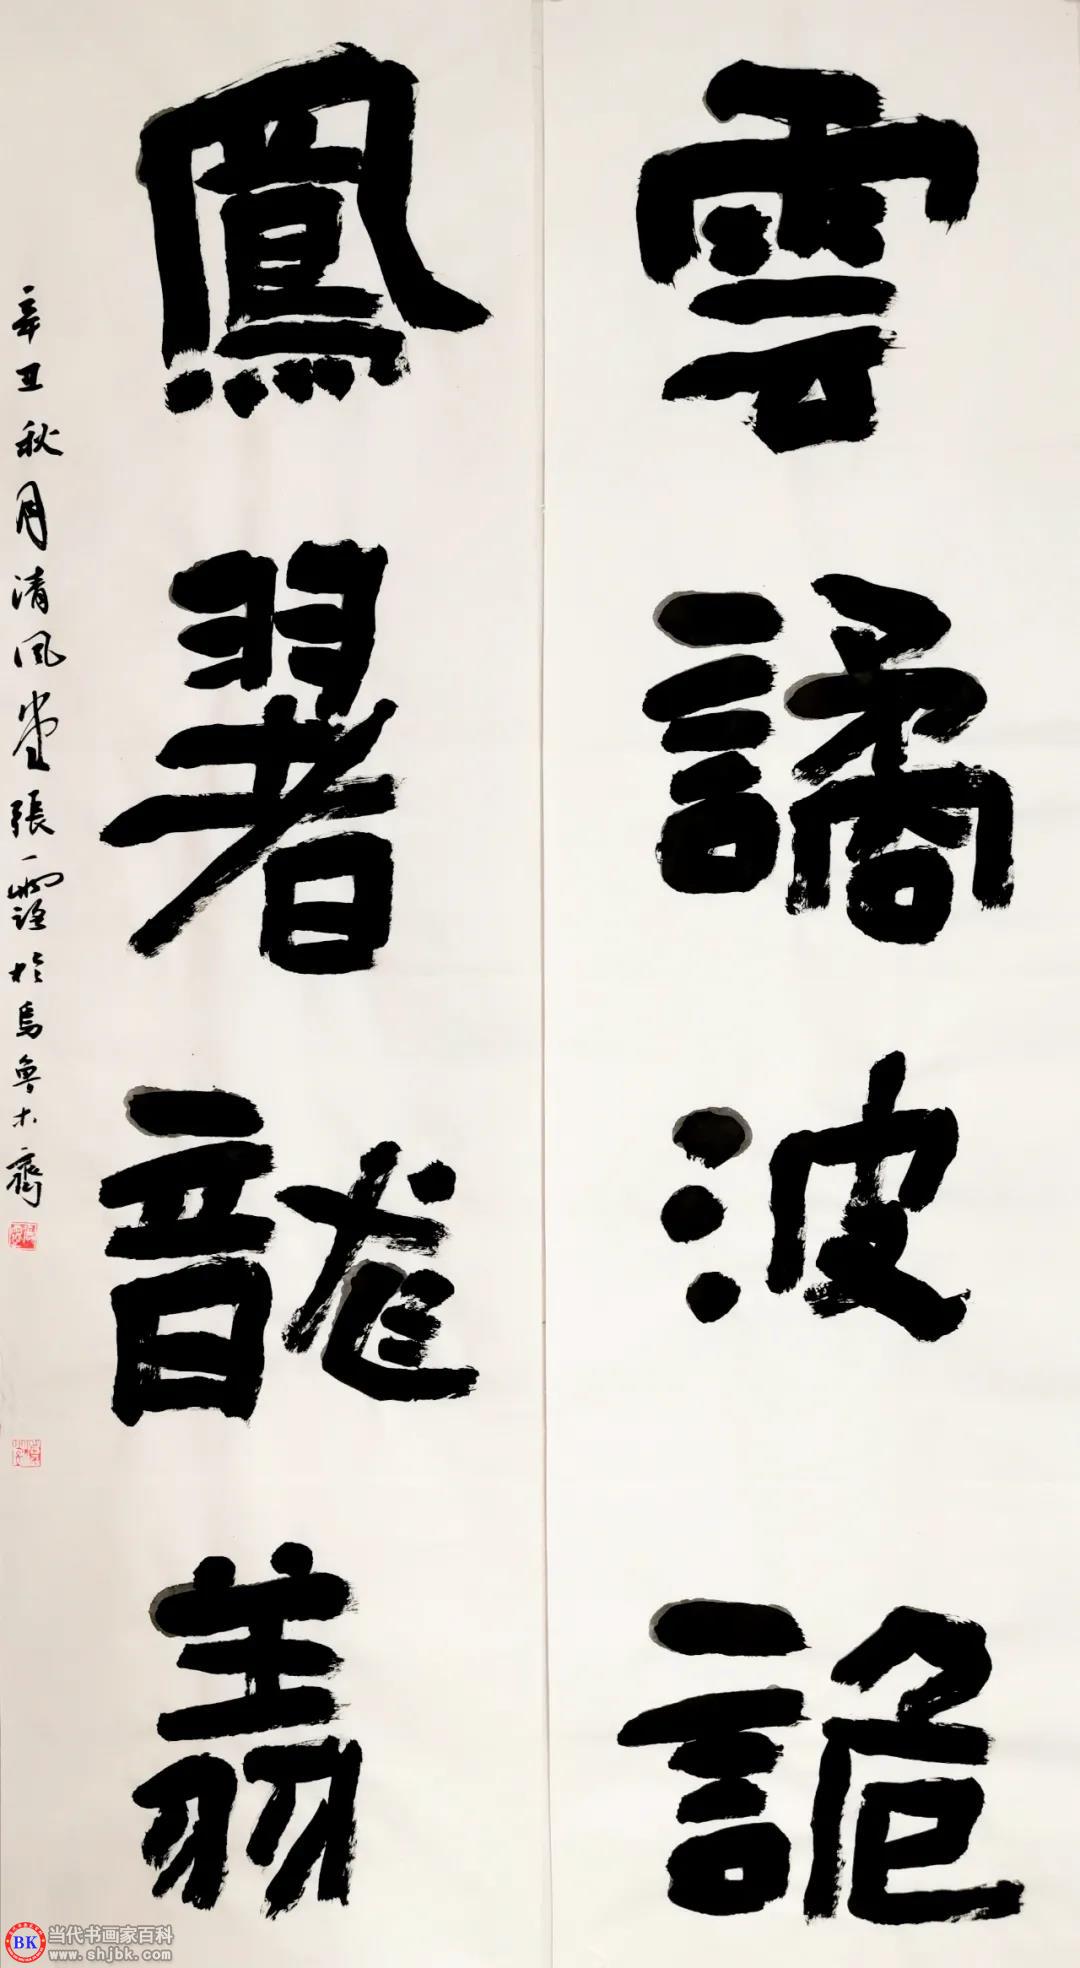 雲譎波詭
鳳翥龍翔
辛丑秋月清風堂張露於烏魯木齊
BK 当代书画家百科
www.shjbk.com